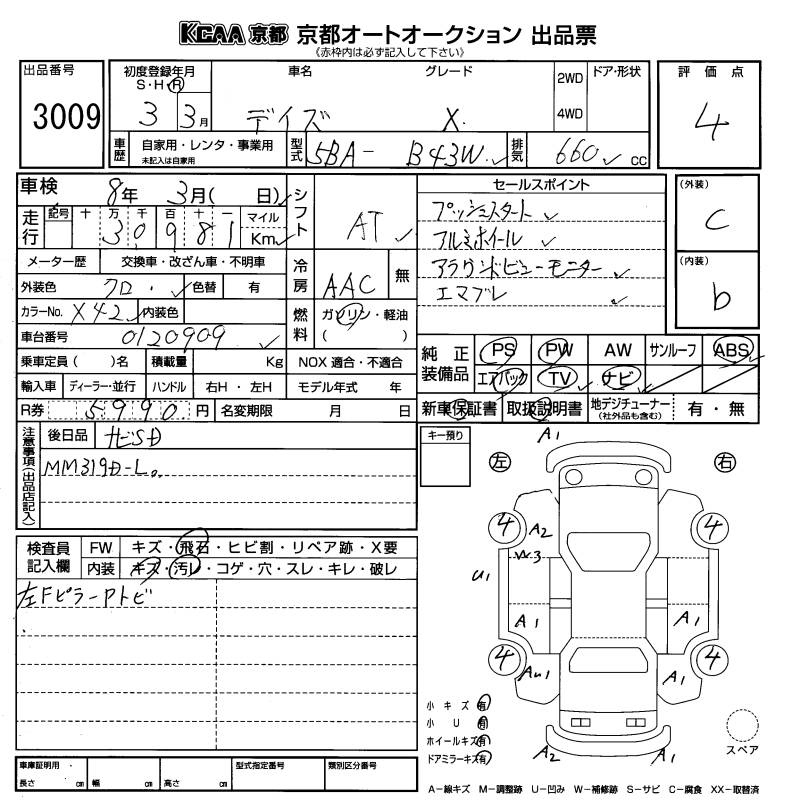 KCAA 京都 京都オートオークション 出品票
《赤枠内は必ず記入して下さい》
出品番号 3009
初度登録年月 S・H・R 3 3月
車名 デイズ
グレード X
2WD 4WD
ドア・形状
評価点 4
車歴 自家用・レンタ・事業用 未記入は自家用
型式 5BA- B43W
排気 660 cc
車検 8年 3月( 日)
シフト AT
セールスポイント
プッシュスタート
アルミホイール
アラウンドビューモニター
エマブレ
(外装) C
(内装) b
走行 記号 十 万 千 百 十 一 マイル Km
30981
メーター歴 交換車・改ざん車・不明車
冷房 AAC 無
外装色 クロ 色替 有
カラーNo. X42 内装色
燃料 ガソリン・軽油 ( )
車台番号 0120909
純正装備品 PS PW AW サンルーフ ABS
エアバック TV ナビ
乗車定員( )名 積載量 Kg NOX 適合・不適合
輸入車 ディーラー・並行 ハンドル 右H・左H モデル年式 年
R券 5990円 名変期限 月 日
新車保証書 取扱説明書 地デジチューナー (社外品も含む) 有・無
注意事項(出品店記入)
後日品 ナビSD
MM319D-L。
キー預り
左 右
A1
4 4
A2
W3
U1
A1 A1
4 4
AU1 A1
A2 A1
検査員記入欄
FW キズ・飛石・ヒビ割・リペア跡・X要
内装 キズ・汚レ・コゲ・穴・スレ・キレ・破レ
左FピラーPトビ
小キズ 有
小U 有
ホイールキズ 有
ドアミラーキズ 有
スペア
車庫証明用 長さ cm 幅 cm 高さ cm
型式指定番号
類別区分番号
A-線キズ M-調整跡 U-凹み W-補修跡 S-サビ C-腐食 XX-取替済